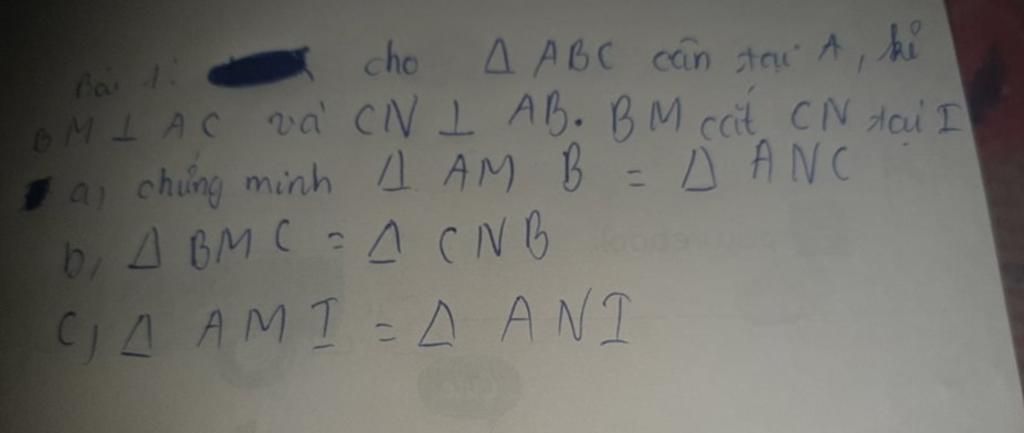 Bài 1: cho Δ ABC cân tại A, kẻ
BM ⊥ AC và CN ⊥ AB. BM cắt CN tại I
a, chứng minh Δ AM B = Δ ANC
b, Δ BMC = Δ CNB
C, Δ AMI = Δ ANI